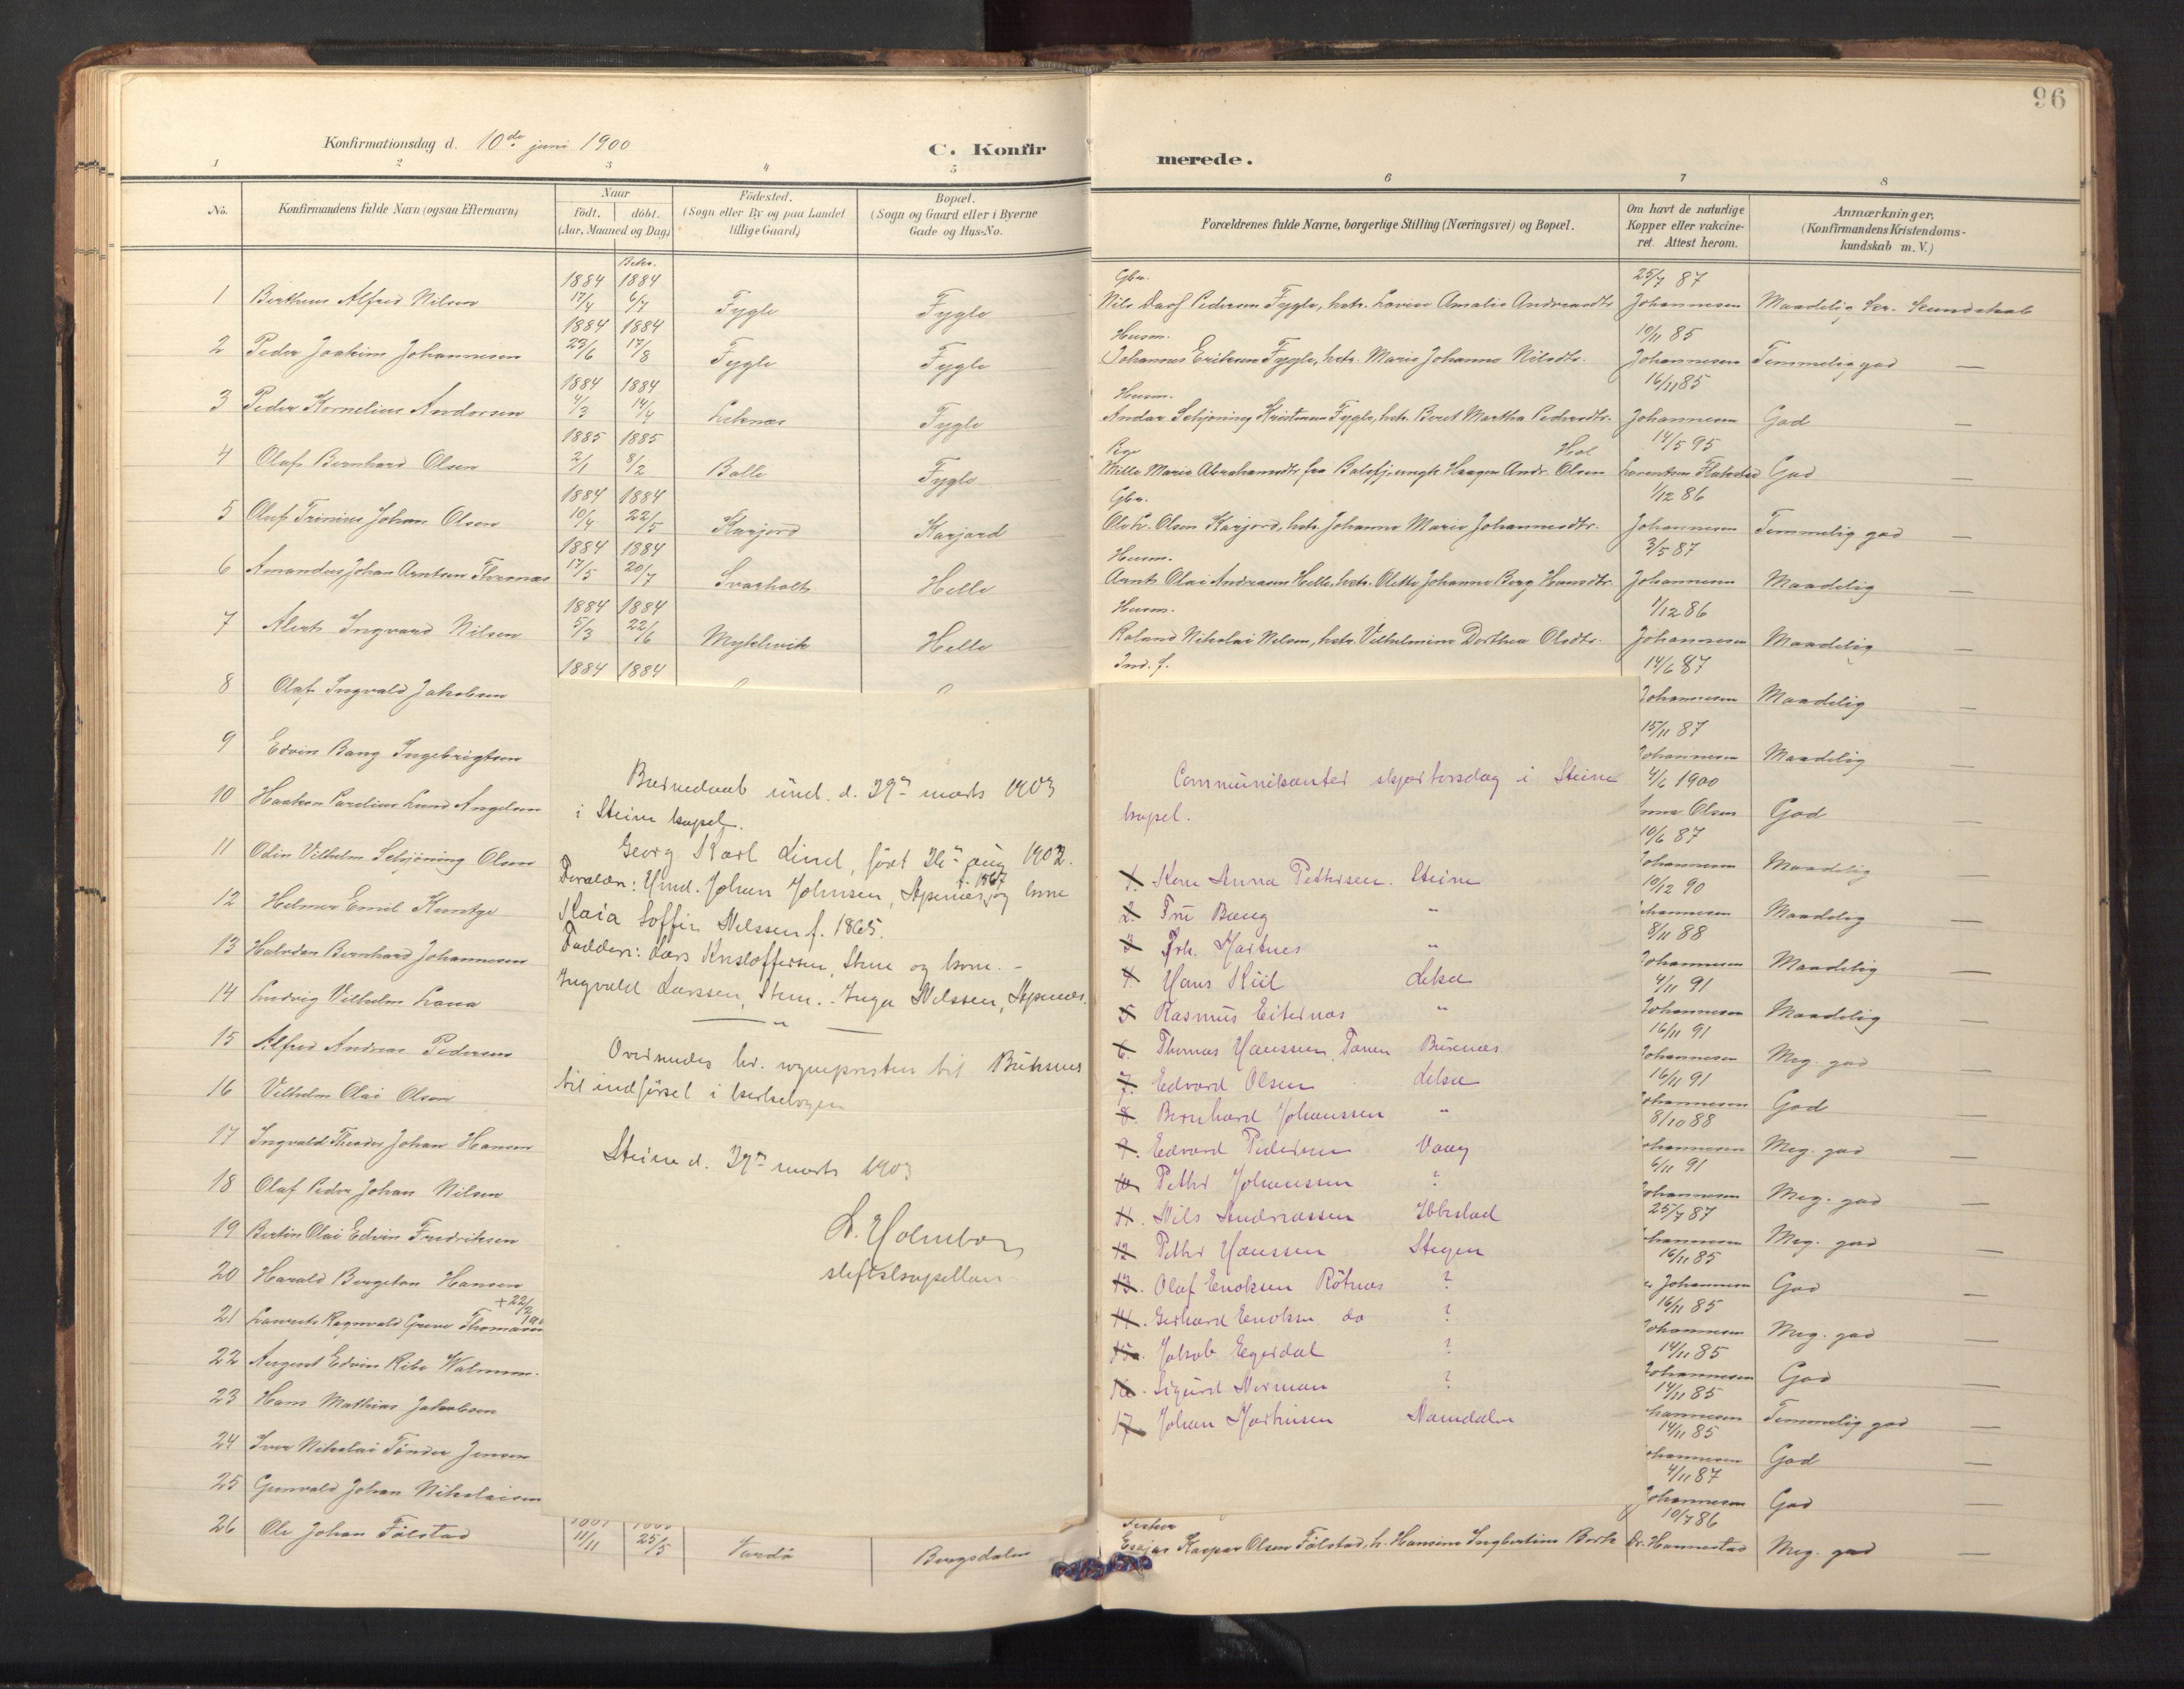 96
Konfirmationsdag d. 10de juni 1900
C. Konfirmerede.
1 2 3 4 5 6 7 8
No.
Konfirmandens fulde Navn (ogsaa Efternavn)
Naar
født. døbt.
(Aar, Maaned og Dag)
Fødested.
(Sogn eller By og paa Landet
tillige Gaard)
Bopæl.
(Sogn og Gaard eller i Byerne
Gade og Hus-No.
Forældrenes fulde Navne, borgerlige Stilling (Næringsvei) og Bopæl.
Om havt de naturlige
Kopper eller vakcine-
ret. Attest herom.
Anmærkninger.
(Konfirmandens Kristendoms-
kundskab m. V.)
1884 1884 Gbr. 25/7 87
1 Bertheus Alfred Nilsen 17/4 6/7 Fygle Fygle Nils Dass Pedersen Fygle, hstr. Lovise Amalie Andreasdtr Johannesen Maadelig Kr. Kundskab
1884 1884 Husm. 10/11 85
2 Peder Joakim Johannesen 23/6 17/8 Fygle Fygle Johannes Eriksen Fygle, hstr. Marie Johanna Nilsdtr. Johannesen Temmelig god —
1884 1884 Husm. 16/11 85
3 Peder Kornelius Andersen 4/3 14/4 Leknes Fygle Andar Schjøning Kristensen Fygle, hstr. Beret Martha Pedersdtr. Johannesen God —
1885 1885 Pige 14/5 95
4 Olaf Bernhard Olsen 2/1 8/2 Balle Fygle Mille Marie Abrahamsdtr. fra Balsfj, ungk. Haagen Andr. Olsen Hol Lorentsen Flakstad God —
1884 1884 Gbr. 1/12 86
5 Oluf Trinius Johan Olsen 10/4 22/5 Karjord Karjord Ole Kr. Olsen Karjord, hstr. Johanna Marie Johannesdtr. Johannesen Temmelig god —
1884 1884 Husm. 3/5 87
6 Amandus Johan Arntsen Thomas 17/5 20/7 Svarholt Helle Arnt Olai Andreasen Helle, hstr. Olette Johanna Berg Hansdtr. Johannesen Maadelig —
1884 1884 Husm. 1/12 86
7 Alert Ingvard Nilsen 5/3 22/6 Myklevik Helle Roland Nikolai Nilsen, hstr. Vilhelmine Dorthea Olsdtr. Johannesen Maadelig —
1884 1884 Ind. f. 14/6 87
8 Olaf Ingvald Jakobsen Johannesen Maadelig —
15/11 87
9 Edvin Bang Ingebrigtsen Johannesen Maadelig —
4/6 1900
10 Haakon Parelius Lund Angelsen Olsen God —
10/6 87
11 Odin Vilhelm Schjøning Olsen Johannesen Maadelig —
10/12 90
12 Helmer Emil Kuntze Johannesen Maadelig —
8/11 88
13 Halvdan Bernhard Johannesen Johannesen Maadelig —
4/11 91
14 Ludvig Vilhelm Lana Johannesen Maadelig —
16/11 91
15 Alfred Andreas Pedersen Johannesen Meg. god —
16/11 91
16 Vilhelm Olai Olsen Johannesen God —
8/10 88
17 Ingvald Theodor Johan Hansen Johannesen Meg. god —
6/11 91
18 Olaf Peder Johan Nilsen Johannesen Meg. god —
25/7 87
19 Bertin Olai Edvin Fredriksen Johannesen Meg. god —
16/11 85
20 Harald Bergeton Hansen Johannesen God —
+ 22/2 16/11 85
21 Laurits Ragnvald Greve Thomassen Johannesen Meg. god —
14/11 85
22 August Edvin Ribe Walmann. Johannesen God —
14/11 85
23 Hans Mathias Jakobsen Johannesen Temmelig god —
14/11 85
24 Iver Nikolai Tønder Jensen Johannesen God —
4/11 87
25 Gunvald Johan Nikolaisen Johannesen God —
Fisker 10/7 86
26 Ole Johan Følstad 11/11 25/5 Vardø Bergsdalen Esajas Kaspar Olsen Følstad, h. Hansine Ingbertine Bork Dr. Hannestad Meg. god —
Barnedaab und. d. 29de marts 1903
i Steine kapel.
Georg Karl Lind, født 26de aug 1902.
Forældre: Ind. Johan Johnsen, Apenæs, f. 1867 og kone
Kaia Soffie Nilssen f. 1865.
Faddere: Lars Kristoffersen, Stene og kone. -
Ingvald Larssen, Stene. - Inga Nilssen, Apenæs.
— „ —
Oversendes hr. sogneprесten til Buksnes
til indførsel i kirkebogen
Steine d. 29de marts 1903
D. Holmboe
stiftskapellan
Communikanter skjærtorsdag i Steine
kapel.
1. Kone Anna Pettersen. Steine
2. Fru Bang „
3 Frk. Hartnes „
4. Hans Kiil Leka
5 Rasmus Eiternes „
6. Thomas Hanssen, Fanen Burenæs.
7. Edvard Olsen Leka
8. Bernhard Johanssen „
9. Edvard Pedersen Vaag
10 Petter Johanssen ?
11. Nils Andreassen Ibbestad
12 Petter Hanssen Stegen
13. Olaf Enoksen Røtnæs ?
14. Gerhard Enoksen do ?
15. Jakob Eggesdal ?
16. Sigurd Norman ?
17. Johan Martinsen Namdalen